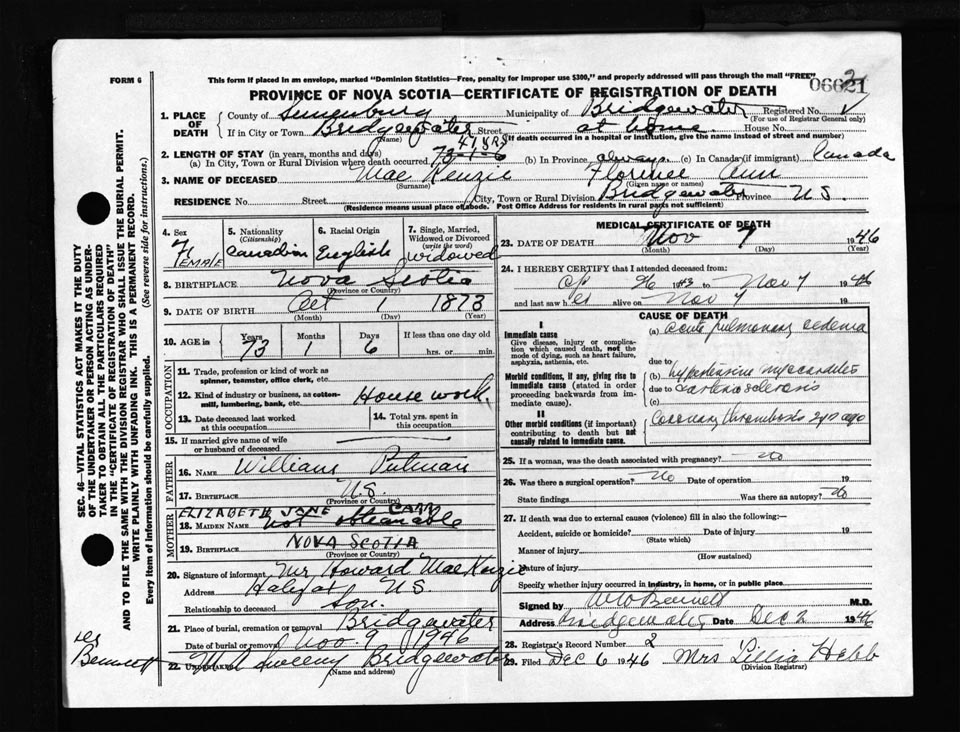 FORM 6
This form if placed in an envelope, marked "Dominion Statistics—Free, penalty for improper use $300," and properly addressed will pass through the mail "FREE"
06621
2
PROVINCE OF NOVA SCOTIA—CERTIFICATE OF REGISTRATION OF DEATH
1. PLACE OF DEATH
County of Lunenburg Municipality of Bridgewater Registered No.
(For use of Registrar General only)
If in City or Town Bridgewater Street at home. House No.
(Name) (If death occurred in a hospital or institution, give the name instead of street and number)
47 yrs
2. LENGTH OF STAY (in years, months and days)
(a) In City, Town or Rural Division where death occurred 73-1-6 (b) In Province always. (c) In Canada (if immigrant) Canada
3. NAME OF DECEASED Mac Kenzie Florence Ann
(Surname) (Given name or names)
RESIDENCE No. Street City, Town or Rural Division Bridgewater Province N.S.
(Residence means usual place of abode. Post Office Address for residents in rural parts not sufficient)
4. Sex
Fe
FEMALE
5. Nationality
(Citizenship)
Canadian
6. Racial Origin
English
7. Single, Married, Widowed or Divorced
(write the word)
widowed
8. BIRTHPLACE Nova Scotia
(Province or Country)
9. DATE OF BIRTH Oct 1 1873
(Month) (Day) (Year)
10. AGE in Years Months Days If less than one day old
73 1 6 hrs. or min.
OCCUPATION
11. Trade, profession or kind of work as
spinner, teamster, office clerk, etc.
12. Kind of industry or business, as cotton-
mill, lumbering, bank, etc. House work.
13. Date deceased last worked
at this occupation
14. Total yrs. spent in
this occupation
15. If married give name of wife
or husband of deceased
FATHER
16. NAME William Putman
17. BIRTHPLACE N.S.
(Province or Country)
MOTHER
ELIZABETH JANE CARD
18. MAIDEN NAME not obtainable
19. BIRTHPLACE NOVA SCOTIA
(Province or Country)
20. Signature of informant Mr Howard MacKenzie
Address Halifax N.S.
Relationship to deceased son.
21. Place of burial, cremation or removal Bridgewater
Date of burial or removal Nov. 9 1946
22. UNDERTAKER Sweeny Bridgewater
(Name and address)
Bennett
MEDICAL CERTIFICATE OF DEATH
23. DATE OF DEATH Nov 7 1946
(Month) (Day) (Year)
24. I HEREBY CERTIFY that I attended deceased from:
26 1943 to Nov 7 1946
and last saw her alive on Nov 7 19
CAUSE OF DEATH
I
Immediate cause
Give disease, injury or complica-
tion which caused death, not the
mode of dying, such as heart failure,
asphyxia, asthenia, etc.
(a) acute pulmonary oedema
due to
Morbid conditions, if any, giving rise to
immediate cause (stated in order
proceeding backwards from im-
mediate cause).
(b) hypertensive myocarditis
due to arteriosclerosis
(c)
II
Other morbid conditions (if important)
contributing to death but not
causally related to immediate cause.
Coronary thrombosis 2 yrs ago
25. If a woman, was the death associated with pregnancy? no
26. Was there a surgical operation? No Date of operation 19
State findings Was there an autopsy? No
27. If death was due to external causes (violence) fill in also the following:—
Accident, suicide or homicide? Date of injury 19
(State which)
Manner of injury
(How sustained)
Nature of injury
Specify whether injury occurred in industry, in home, or in public place
Signed by W O Bennett M.D.
Address Bridgewater Date Dec 2 1946
28. Registrar's Record Number 2
29. Filed DEC 6 1946 Mrs Lillia Hebb
(Division Registrar)
SEC. 46—VITAL STATISTICS ACT MAKES IT THE DUTY
OF THE UNDERTAKER OR PERSON ACTING AS UNDER-
TAKER TO OBTAIN ALL THE PARTICULARS REQUIRED
IN THE "CERTIFICATE OF REGISTRATION OF DEATH"
AND TO FILE THE SAME WITH THE DIVISION REGISTRAR WHO SHALL ISSUE THE BURIAL PERMIT.
WRITE PLAINLY WITH UNFADING INK. THIS IS A PERMANENT RECORD.
Every item of Information should be carefully supplied. (See reverse side for instructions.)